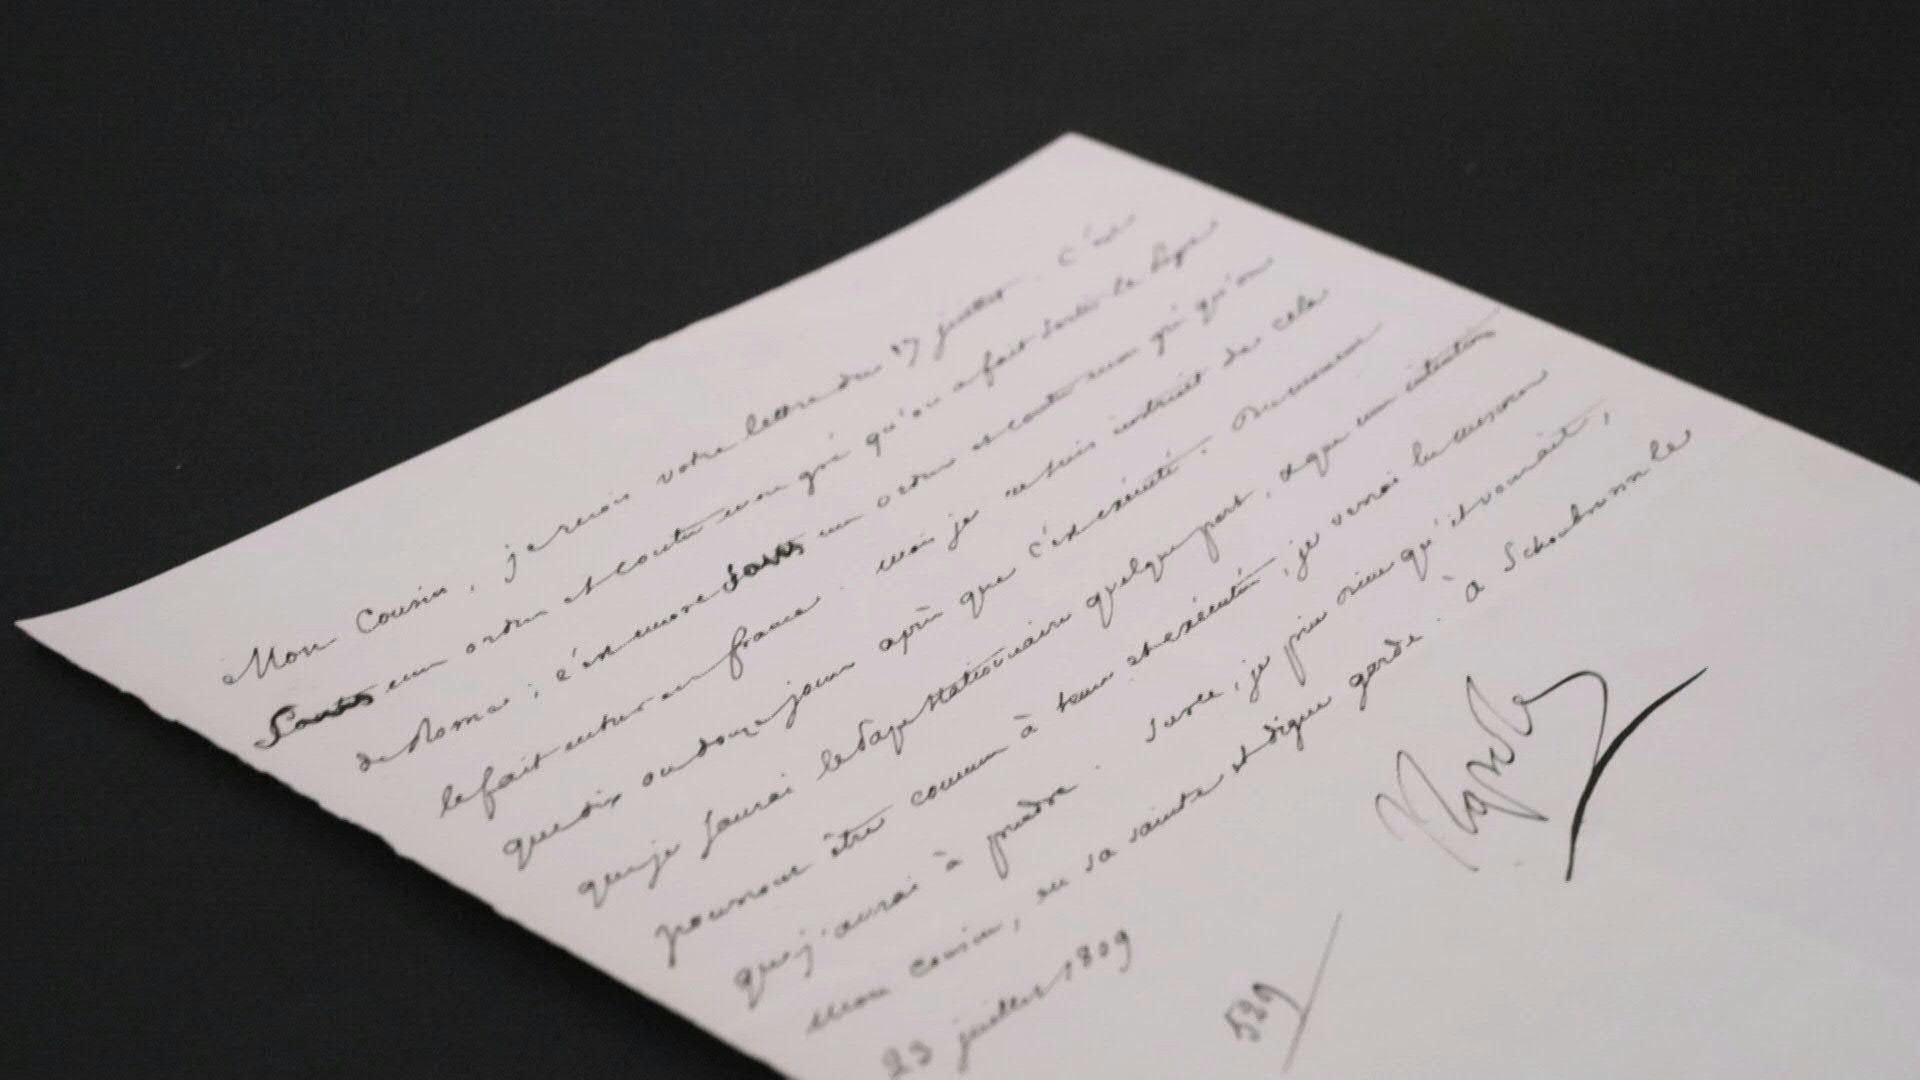 Mon Cousin, je reçois votre lettre du 17 juillet. C'est
sans mon ordre et contre mon gré qu'on a fait sortir le Pape
de Rome; c'est encore sans mon ordre et contre mon gré qu'on
le fait entrer en france. mais je ne suis instruit de cela
que dix ou douze jours après que c'est exécuté. Du moment
que je saurai le Pape stationnaire quelque part, et que mes intentions
pourront être connues à temps et exécutées, je verrai les mesures
que j'aurai à prendre. Sur ce, je prie Dieu qu'il vous ait,
mon cousin, en sa sainte et digne garde. à Schonbrunn le
23 juillet 1809
Napole
529